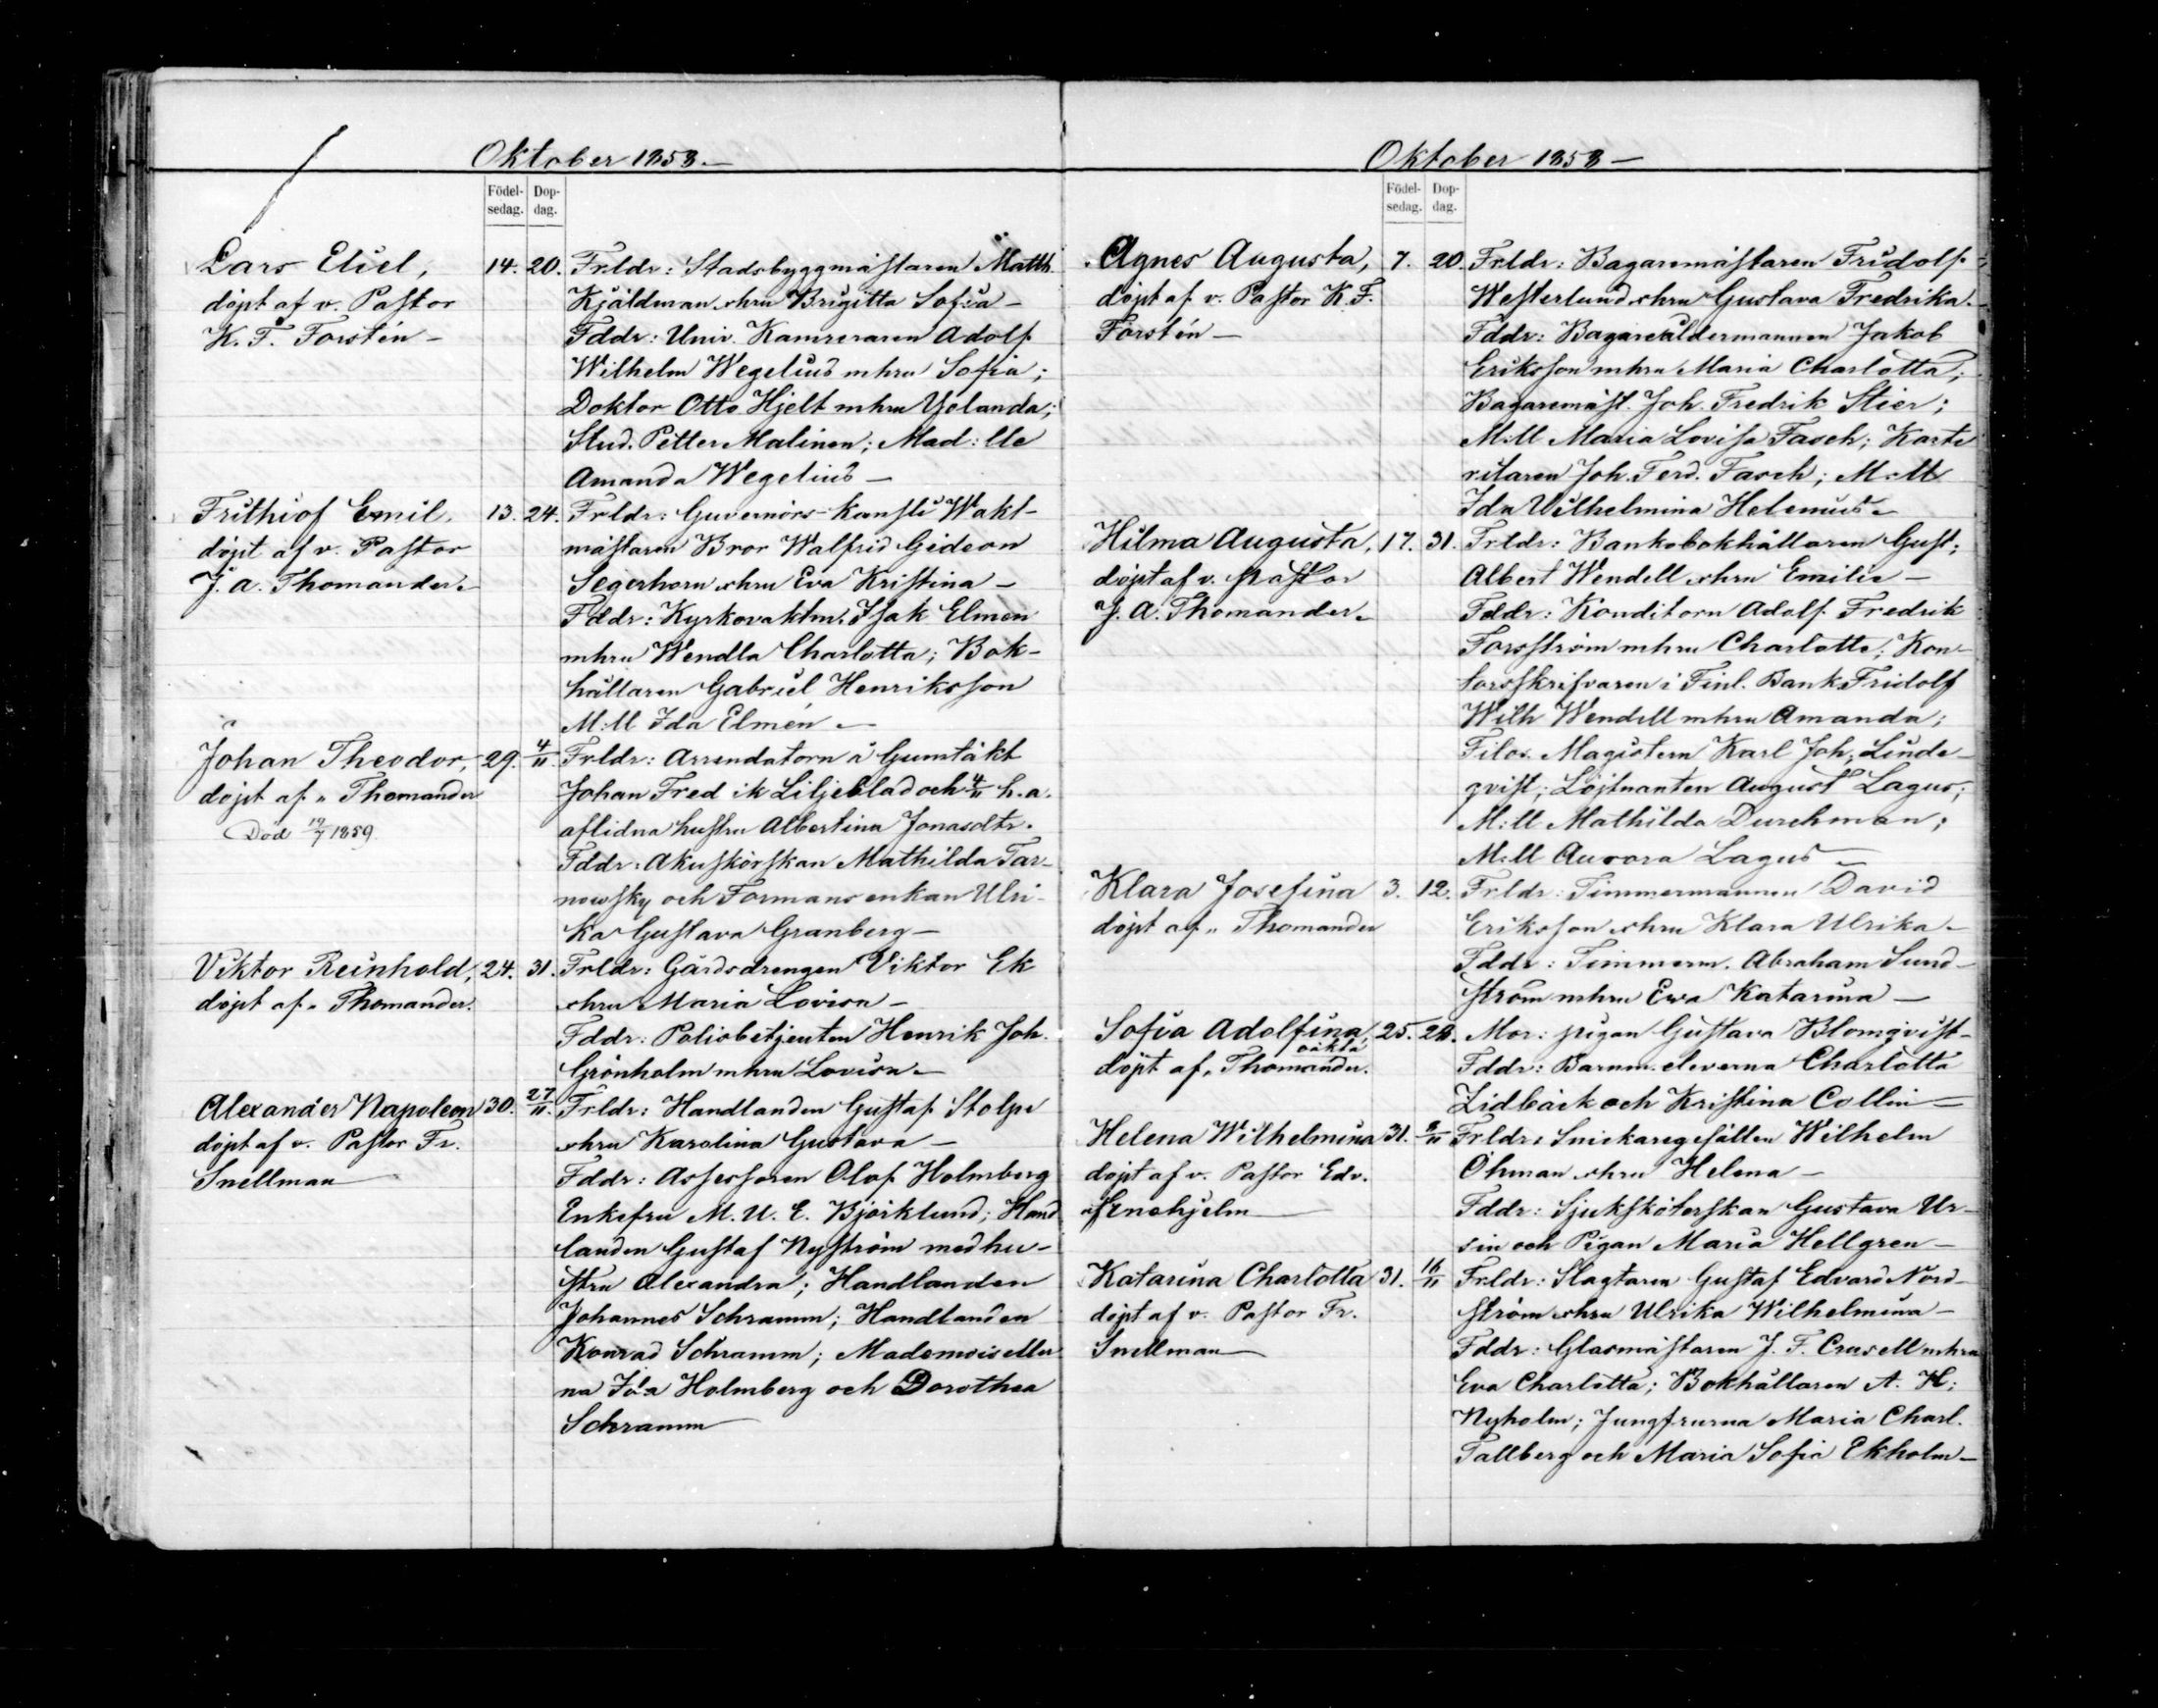 Oktober 1858.—
Födel-
sedag.
Dop-
dag.
Lars Eliel,
döpt af v. Pastor
K. F. Forstén —
14. 20.
Frldr: Stadsbyggmästaren Matth.
Kjäldman o hru Brigitta Sofia —
Fddr: Univ. Kamreraren Adolf
Wilhelm Wegelius m hru Sofia;
Doktor Otto Hjelt m hru Yolanda;
Stud. Petter Malinen; Mad:lle
Amanda Wegelius —
Frithiof Emil,
döpt af v. Pastor
J. A. Thomander.
13. 24.
Frldr: Guvernörs-kansli Wakt-
mästaren Bror Walfrid Gideon
Segerhorn o hru Eva Kristina —
Fddr: Kyrkovaktm. Isak Elmen
m hru Wendla Charlotta; Bok-
hållaren Gabriel Henriksson
M:ll Ida Elmén —
Johan Theodor,
döpt af „ Thomander
Död 19/7 1859
29. 4/11.
Frldr: Arrendatorn å Gumtäkt
Johan Fredik Liljeblad och 4/11 h. a.
aflidna hustru Albertina Jonasdtr.
Fddr: Akuskörskan Mathilda Tar-
nowsky och Formansenkan Ulri-
ka Gustava Granberg —
Viktor Reinhold,
döpt af „ Thomander.
24. 31.
Frldr: Gårdsdrengen Viktor Ek
o hru Maria Lovisa —
Fddr: Polisbetjenten Henrik Joh.
Grönholm m hru Lovisa —
Alexander Napoleon
döpt af v. Pastor Fr.
Snellman
30. 27/11.
Frldr: Handlanden Gustaf Stolpe
o hru Karolina Gustava —
Fddr: Assessoren Olof Holmberg
Enkefru M. U. E. Björklund; Hand
landen Gustaf Nyström med hu-
stru Alexandra; Handlanden
Johannes Schramm; Handlanden
Konrad Schramm; Mademoiseller
na Ida Holmberg och Dorothea
Schramm
Oktober 1858 —
Födel-
sedag.
Dop-
dag.
Agnes Augusta,
döpt af v. Pastor K. F.
Forstén —
7. 20.
Frldr: Bagaremästaren Fridolf
Westerlund o hru Gustava Fredrika.
Fddr: Bagareåldermannen Jakob
Eriksson m hru Maria Charlotta;
Bagaremäst. Joh. Fredrik Stier;
M:ll Maria Lovisa Fasch; Karte
ritaren Joh. Ferd. Fasch; M:ll
Ida Wilhelmina Helenius —
Hilma Augusta,
döpt af v. Pastor
J. A. Thomander.
17. 31.
Frldr: Bankobokhållaren Gust.
Albert Wendell o hru Emilie —
Fddr: Konditorn Adolf Fredrik
Forsström m hru Charlotte; Kon-
torsskrifvaren i Finl. Bank Fridolf
Wilh Wendell m hru Amanda;
Filos. Magistern Karl Joh. Linde-
qvist; Löjtnanten August Lagus;
M:ll Mathilda Durchman;
M:ll Aurora Lagus —
Klara Josefina
döpt af „ Thomander
3. 12.
Frldr: Timmermannen David
Eriksson o hru Klara Ulrika —
Fddr: Timmerm. Abraham Sund-
ström m hru Ewa Katarina —
Sofia Adolfina,
oäkta
döpt af „ Thomander.
25. 28.
Mor: pigan Gustava Blomqvist —
Fddr: Barnm. eleverna Charlotta
Lidbäck och Kristina Collin —
Helena Wilhelmina
döpt af v. Pastor Edv.
af Enehjelm
31. 8/11
Frldr: Snickaregesällen Wilhelm
Öhman o hru Helena —
Fddr: Sjuksköterskan Gustava Ur-
sin och Pigan Maria Hellgren —
Katarina Charlotta
döpt af v. Pastor Fr.
Snellman
31. 16/11
Frldr: Slagtaren Gustaf Edvard Nord-
ström o hru Ulrika Wilhelmina —
Fddr: Glasmästaren J. F. Crusell m hru
Eva Charlotta; Bokhållaren A. H.
Nyholm; Jungfrurna Maria Charl.
Tallberg och Maria Sofia Ekholm —